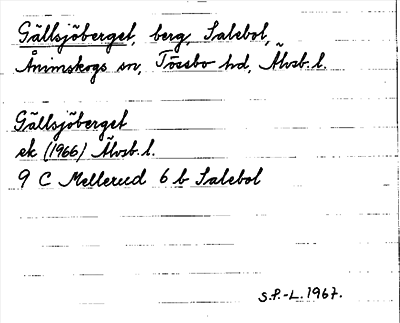 Gällsjöberget, berg, Salebol,
Ånimskogs sn, Tössbo hd, Älvsb. l.
Gällsjöberget
ek (1966) Älvsb. l.
9 C Mellerud 6 b Salebol
S.P.-L. 1967.